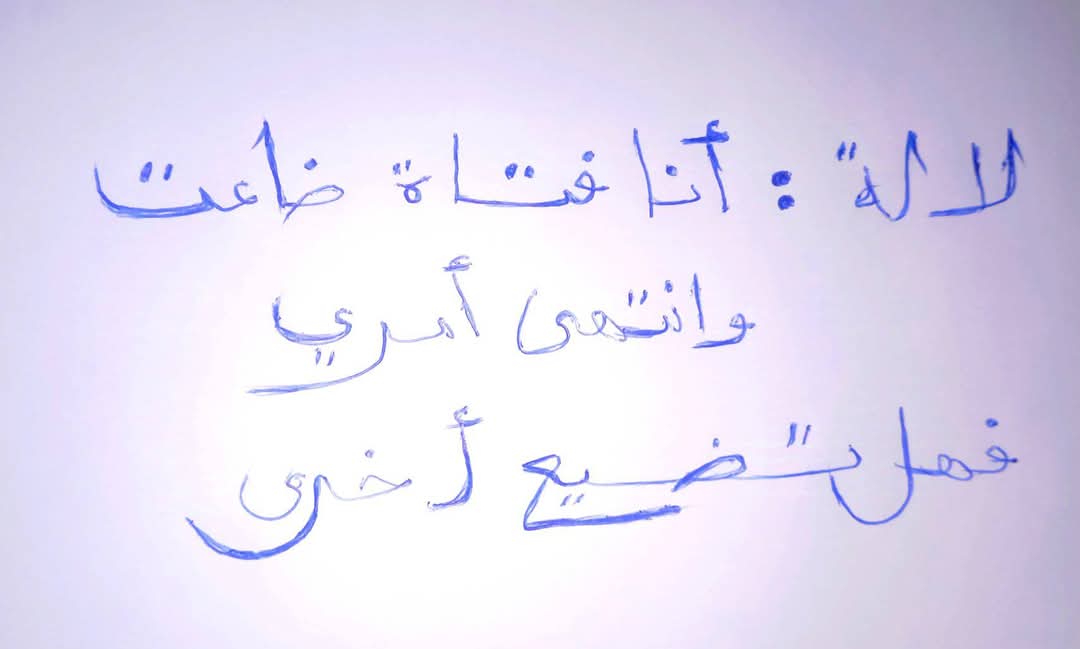 لالة : أنا فتاة ضاعت
وانتهى أمري
فهل تضيع أخرى